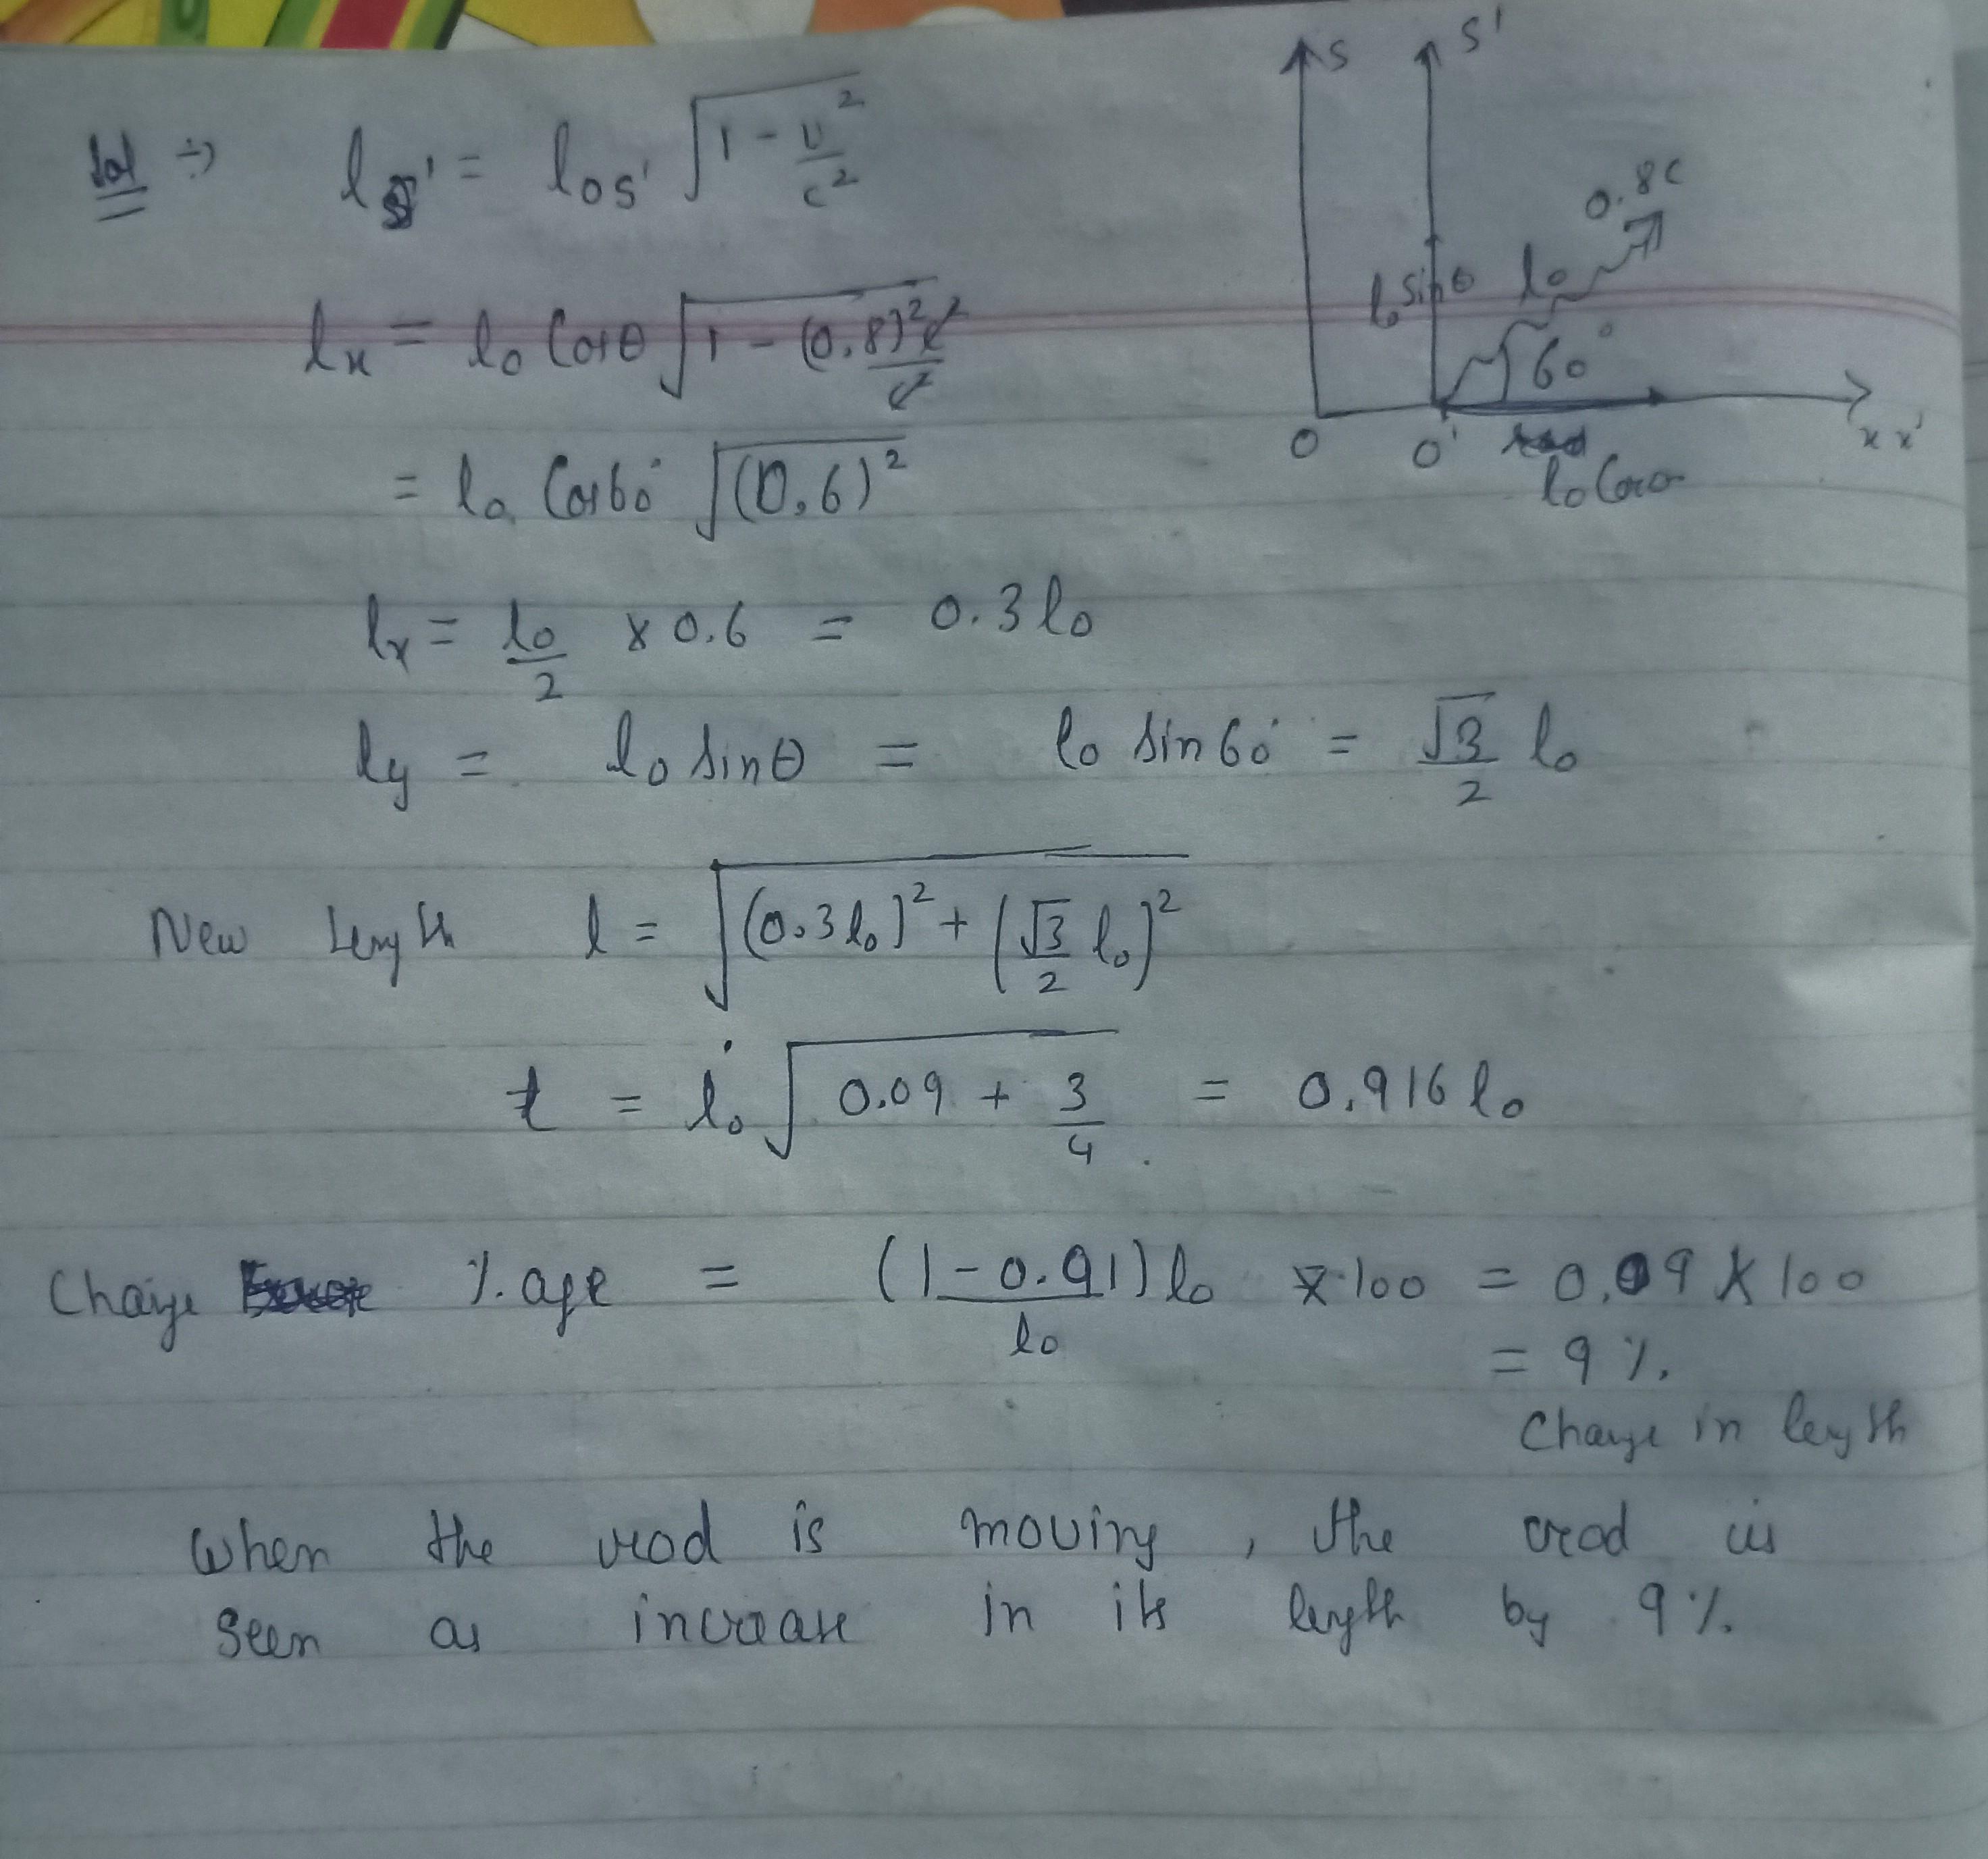 Sol ⇒ lS' = l0S' √(1 - v²/c²)
lx = l0 Cosθ √(1 - (0.8)²c²/c²)
= l0 Cos60° √(0.6)²
lx = l0/2 x 0.6 = 0.3 l0
ly = l0 sinθ = l0 sin60° = √3/2 l0
New length l = √((0.3 l0)² + (√3/2 l0)²)
l = l0 √(0.09 + 3/4) = 0.916 l0
Change %age = (1-0.91) l0/l0 x 100 = 0.09 x 100
= 9%.
Change in length
When the rod is moving, the rod is
seen as increase in its length by 9%.
S S'
0.8c
l0 sinθ l0
60°
O O' x x'
l0 Cosθ